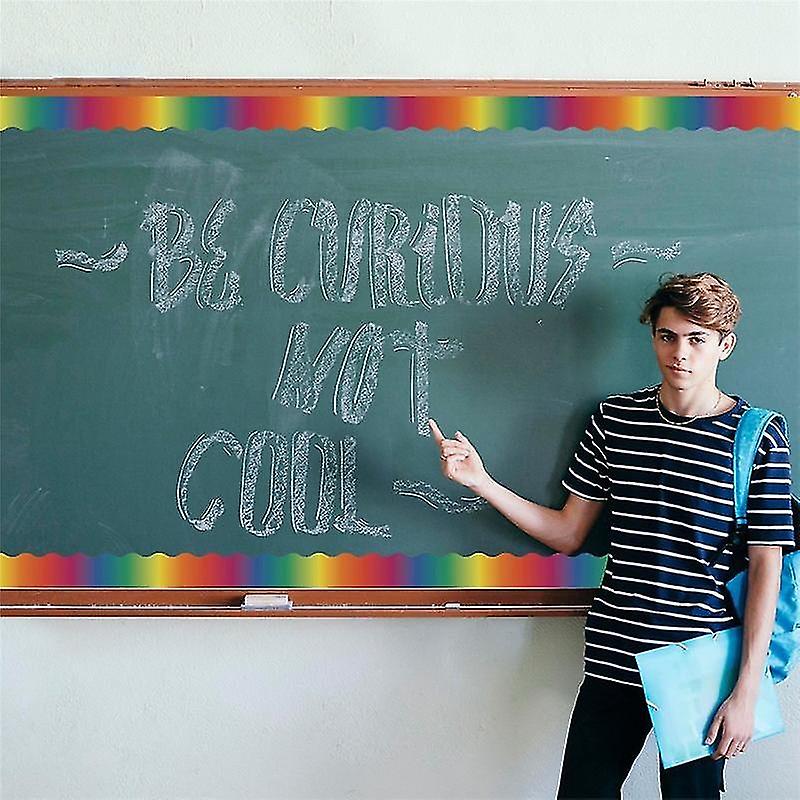 ~ BE CURIOUS ~
NOT
COOL ~